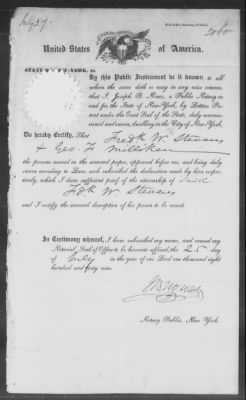 July 27
2060
United States of America.
STATE OF NEW-YORK, ss.
By this Public Instrument be it known to all
whom the same doth or may in any wise concern,
that I, Joseph B. Nones, a Public Notary in
and for the State of New-York, by Letters Pa-
tent under the Great Seal of the State, duly commis-
sioned and sworn, dwelling in the City of New-York,
Do hereby Certify, That Fredk W. Stevens
& Geo. F. Milliken
the persons named in the annexed paper, appeared before me, and being duly
sworn according to Law, each subscribed the declaration made by him respec-
tively, which I deem sufficient proof of the citizenship of said
Fdk W Stevens
and I certify the annexed description of his person to be exact.
In Testimony whereof, I have subscribed my name, and caused my
Notarial Seal of Office to be hereunto affixed, the 25 day
of July in the year of our Lord one thousand eight
hundred and forty nine
JBNones
Notary Public, New York.